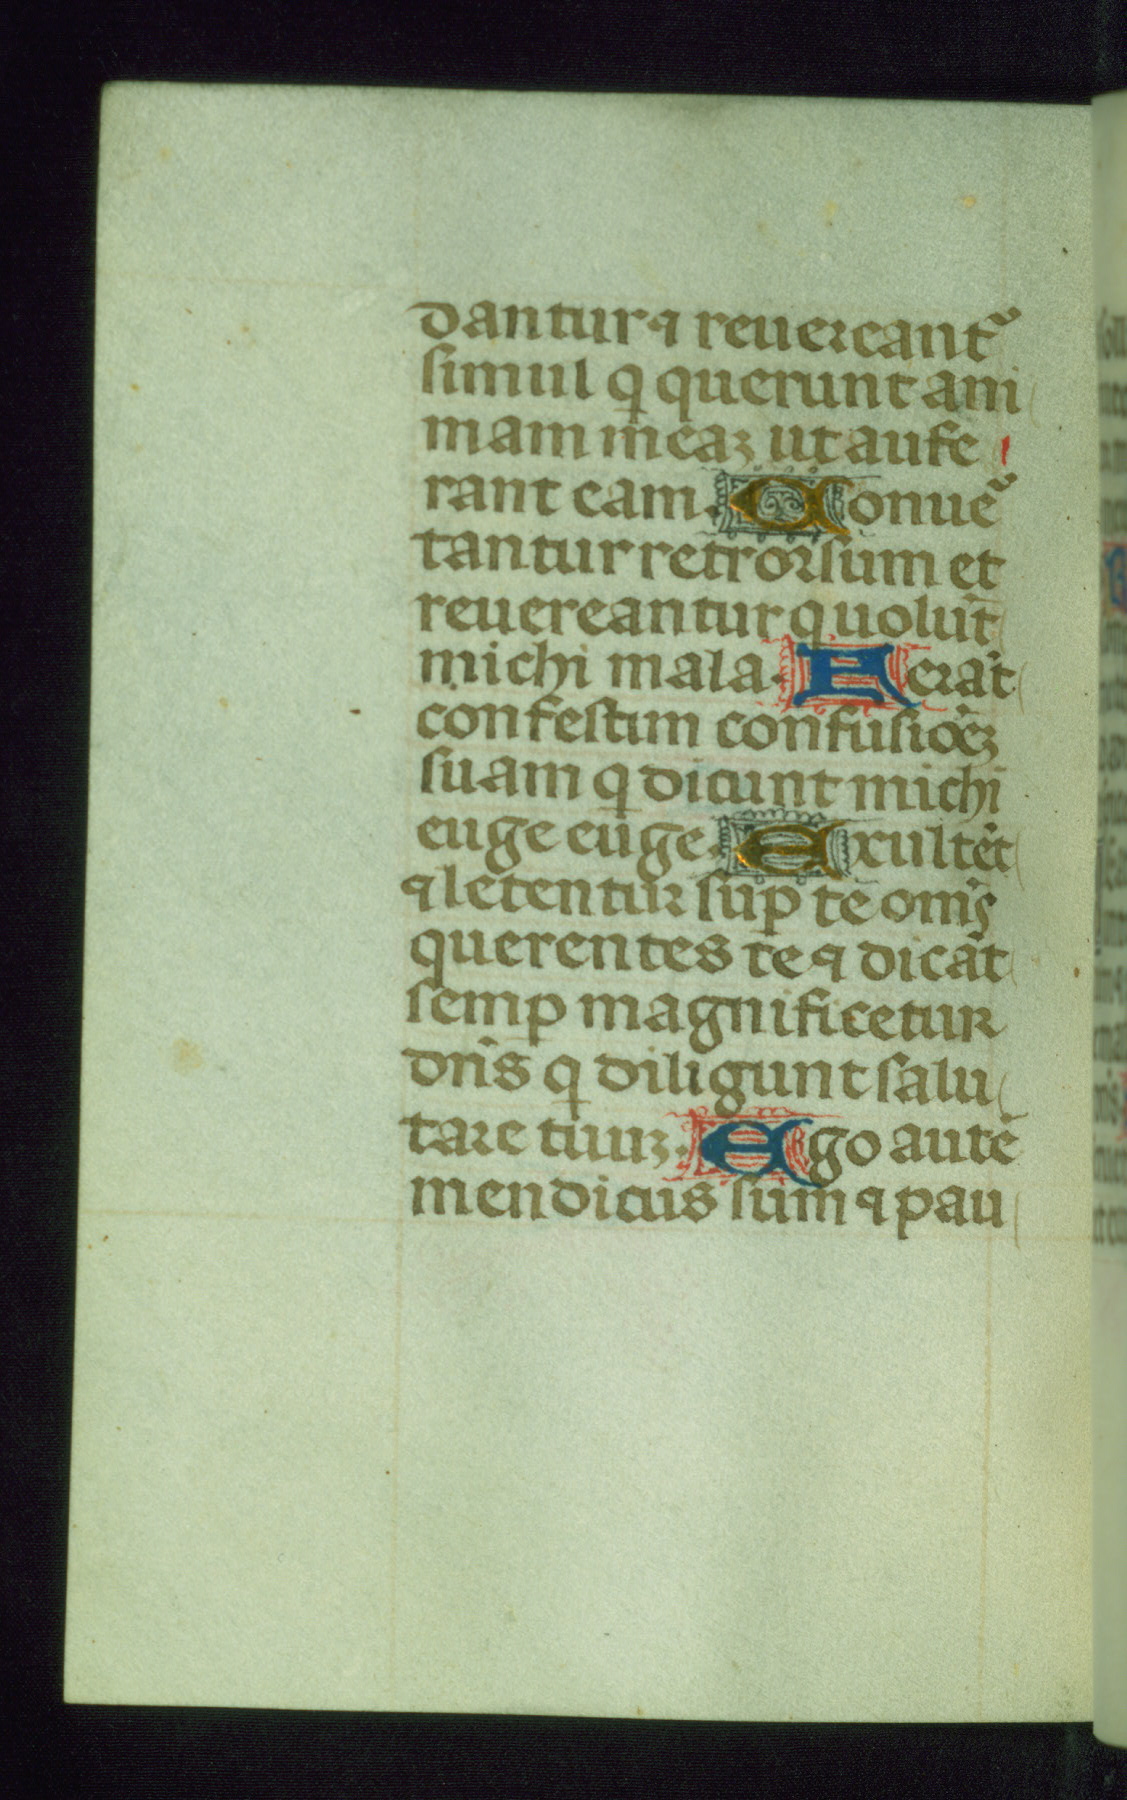 dantur ⁊ reuereantᷣ
simul q̣ querunt ani
mam meaꝫ ut aufe
rant eam. Conueᷣ
tantur retrorsum et
reuereantur q uolūt
michi mala. Ferāt
confestim confusiōeꝫ
suam q dicunt michi
euge euge. Exultēt
⁊ letentur suꝑ te om̄s
querentes te ⁊ dicāt
semꝑ magnificetur
dn̄s q diligunt salu
tare tuuꝫ. Ego autē
mendicus sum ⁊ pau